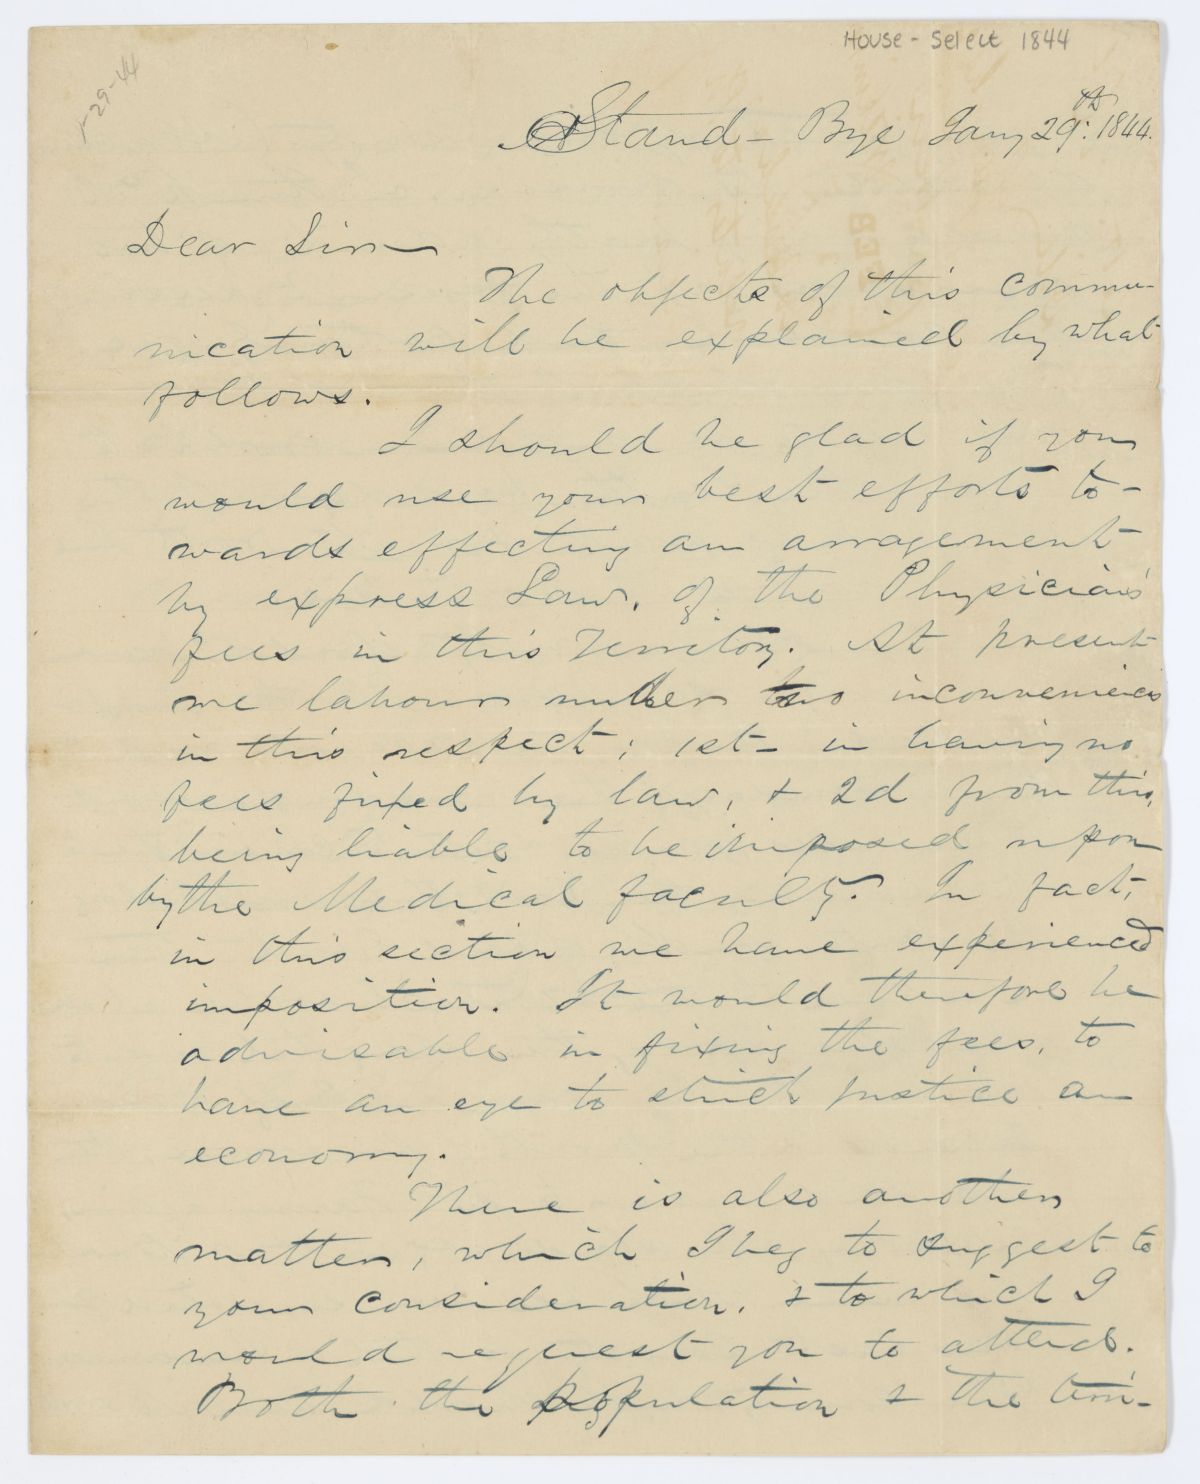 House - Select 1844
1-29-44
Stand-Bye Jany 29th: 1844.
Dear Sir—
The objects of this commu-
nication will be explained by what
follows.
I should be glad if you
would use your best efforts to-
wards effecting an arragement
by express Law, of the Physician's
fees in this Territory. At present
we labour under two inconveniencies
in this respect; 1st— in having no
fees fixed by law, & 2d from this,
being liable to be imposed upon
by the Medical faculty. In fact,
in this section we have experienced
imposition. It would therefore be
advisable in fixing the fees, to
have an eye to strict justice an
economy.
There is also another
matter, which I beg to suggest to
your consideration, & to which I
would request you to attend.
Both the population & the terri-